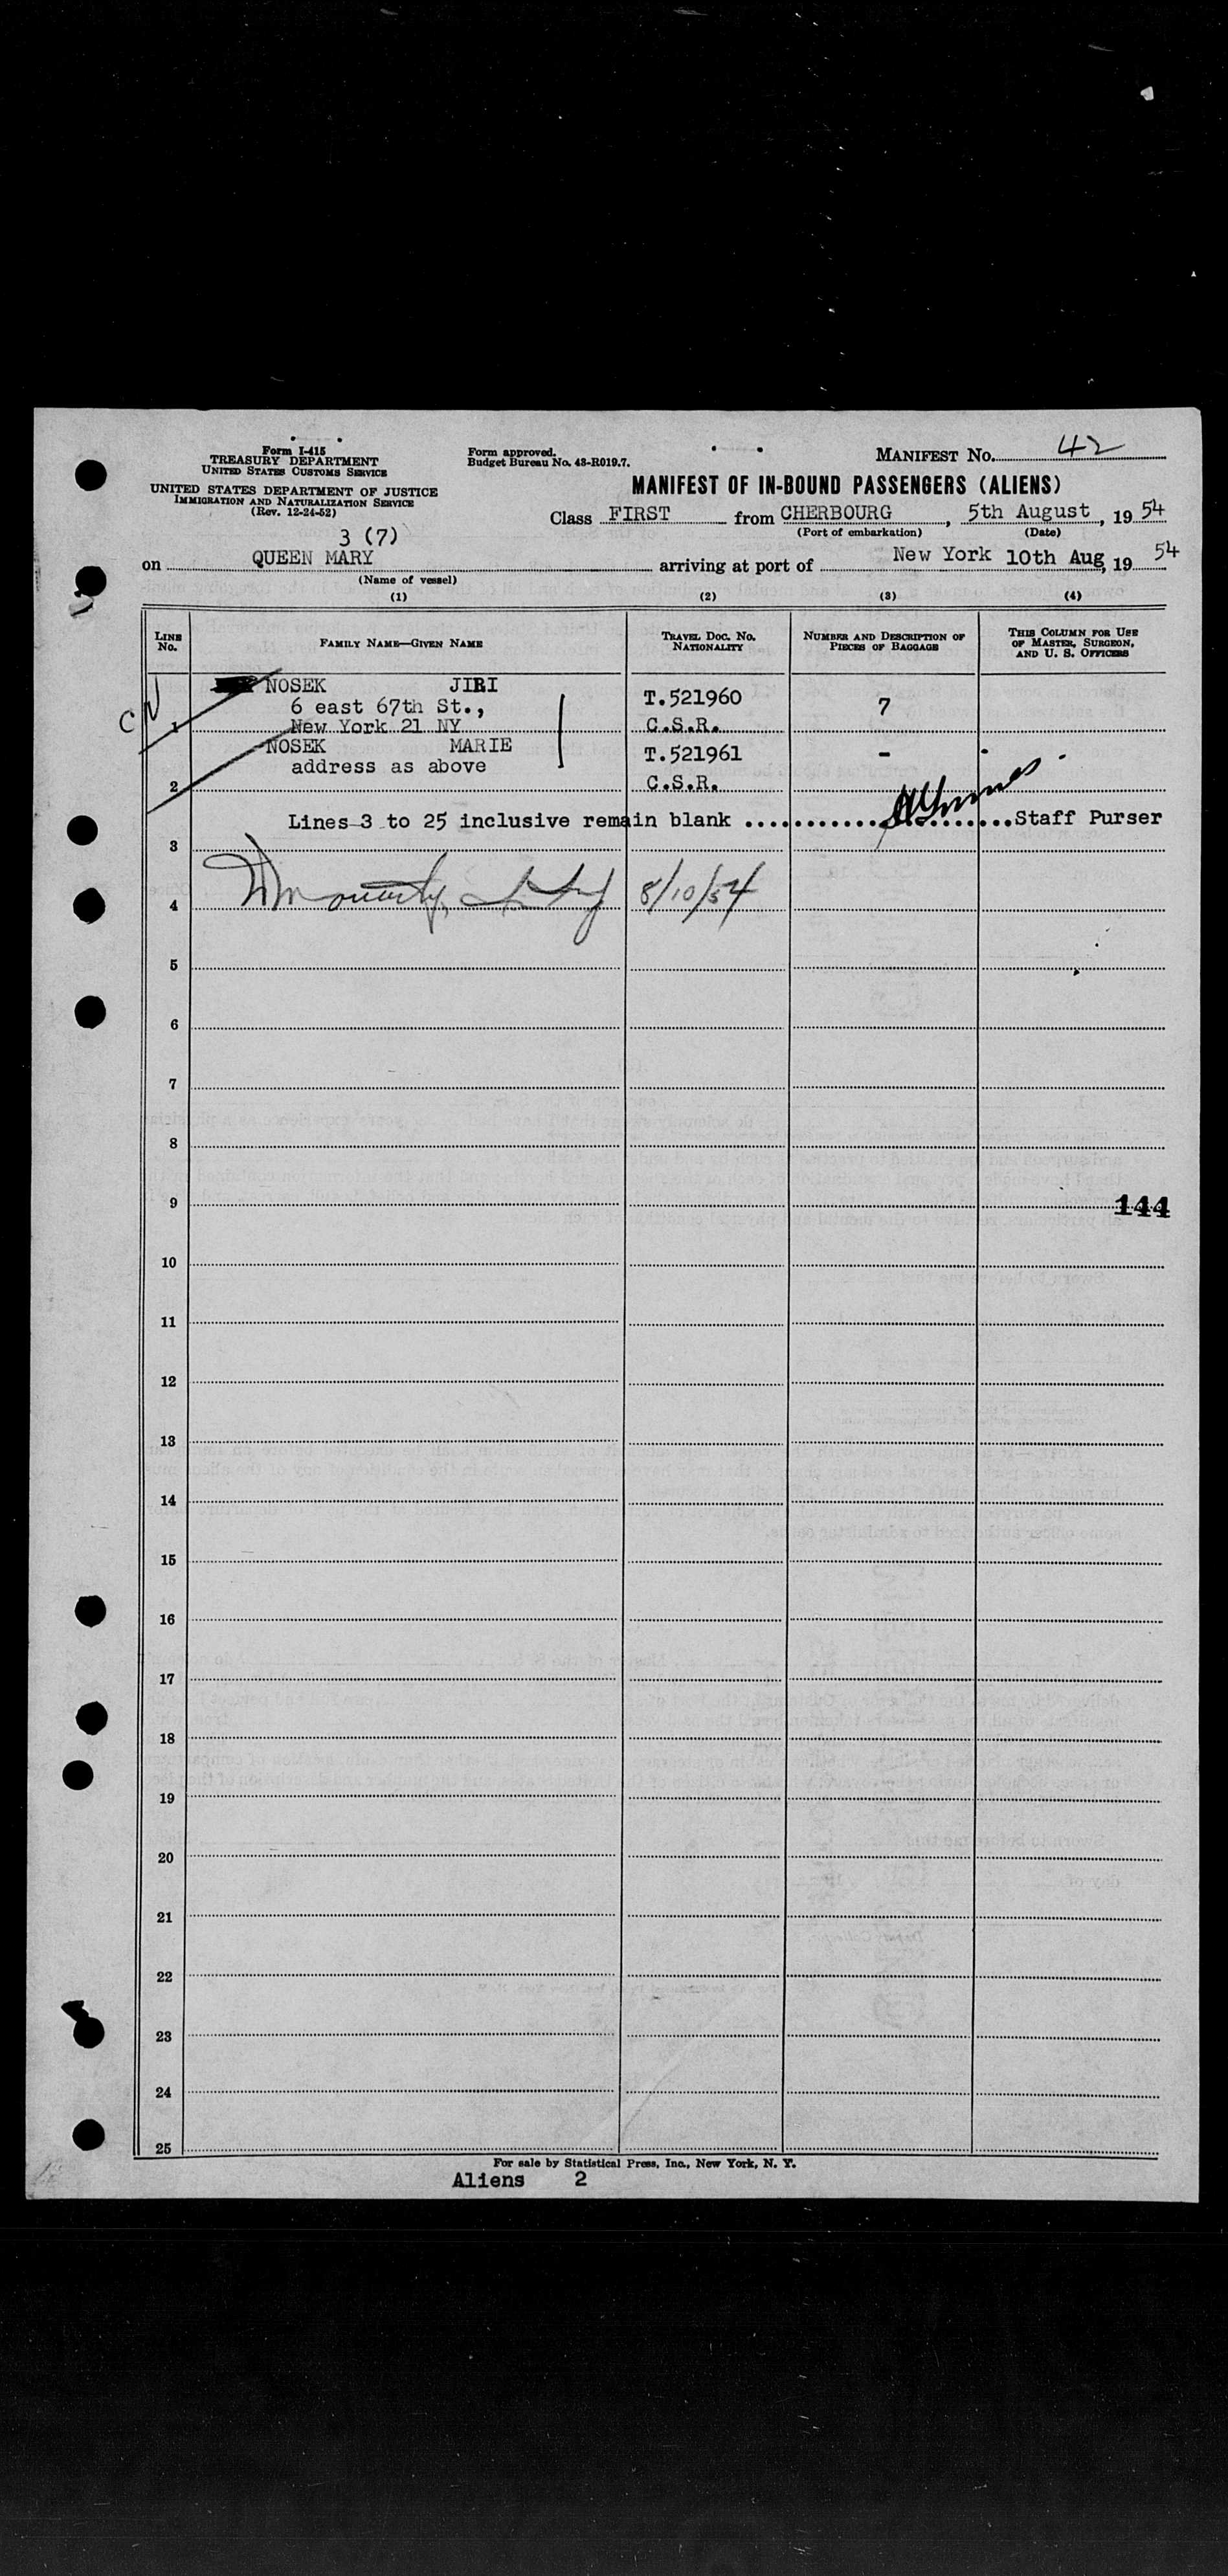 Form I-415
TREASURY DEPARTMENT
UNITED STATES CUSTOMS SERVICE
UNITED STATES DEPARTMENT OF JUSTICE
IMMIGRATION AND NATURALIZATION SERVICE
(Rev. 12-24-52)
Form approved.
Budget Bureau No. 43-R019.7.
MANIFEST No. 42
MANIFEST OF IN-BOUND PASSENGERS (ALIENS)
Class FIRST from CHERBOURG, 5th August, 19 54
(Port of embarkation) (Date)
3 (7)
on QUEEN MARY arriving at port of New York 10th Aug, 19 54
(Name of vessel)
(1) (2) (3) (4)
LINE No. FAMILY NAME—GIVEN NAME TRAVEL DOC. No. NATIONALITY NUMBER AND DESCRIPTION OF PIECES OF BAGGAGE THIS COLUMN FOR USE OF MASTER, SURGEON, AND U. S. OFFICERS
NOSEK JIRI T.521960 7
6 east 67th St.,
1 New York 21 NY C.S.R.
NOSEK MARIE T.521961 -
address as above
2 C.S.R.
Lines 3 to 25 inclusive remain blank ........................Staff Purser
3
4 8/10/54
5
6
7
8
9 144
10
11
12
13
14
15
16
17
18
19
20
21
22
23
24
25
For sale by Statistical Press, Inc., New York, N. Y.
Aliens 2